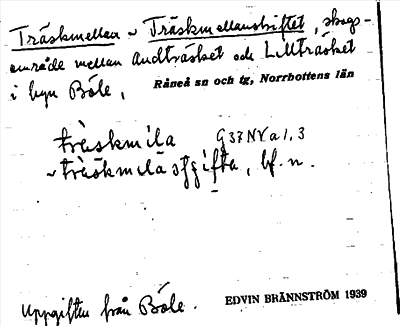 Träskmellan ~ Träskmellanskiftet, skogs-
område mellan Andträsket och Lillträsket
i byn Böle,
Råneå sn och tg, Norrbottens län
träskmila G37 NV a 1, 3
~ träskmila bf. n.
Uppgiften från Böle.
EDVIN BRÄNNSTRÖM 1939